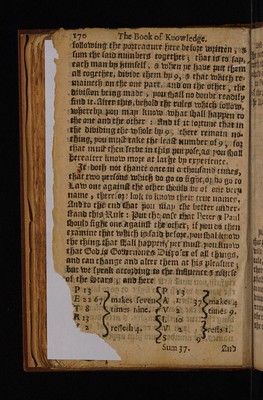 170 The Book of Knowledge.
following the portraiture here before written, &
sum the said numbers together; that is to say,
each man by himself, & when ye have put them
all together, divide them by 9, & that which re-
maineth on the one part, and on the other, the
division being made, you shall no doubt readily
find it. After this, behold the rules which follow,
whereby you may know what shall happen to
the one and the other: And if it fortune that in
the dividing the whole by 9, there remain no-
thing, you must take the least number of 9, for
that must then serve in this purpose, as you shall
hereafter know more at large by experience.
It doth not chance once in a thousand times,
that two persons which do go to fight, or do go to
Law one against the other should be of one very
name, therefore look to know their true names,
And to the end that you may the better under-
stand this Rule: Put the case that Peter & Paul
should fight one against the other, if you do then
examine that which is said before, you shall know
the thing that shall happen; yet must you know
that God is Governour & Disposer of all things,
and can change and alter them at his pleasure;
but we speak according to the influence & course
of the Stars; and here
P 13 P 13
E 22 67 makes seven A 37 makes 4
T 8 times nine. V times 9.
R 13 L 10
2 resteth 4. V 2 rests 1.
S 9
Sum 37. And